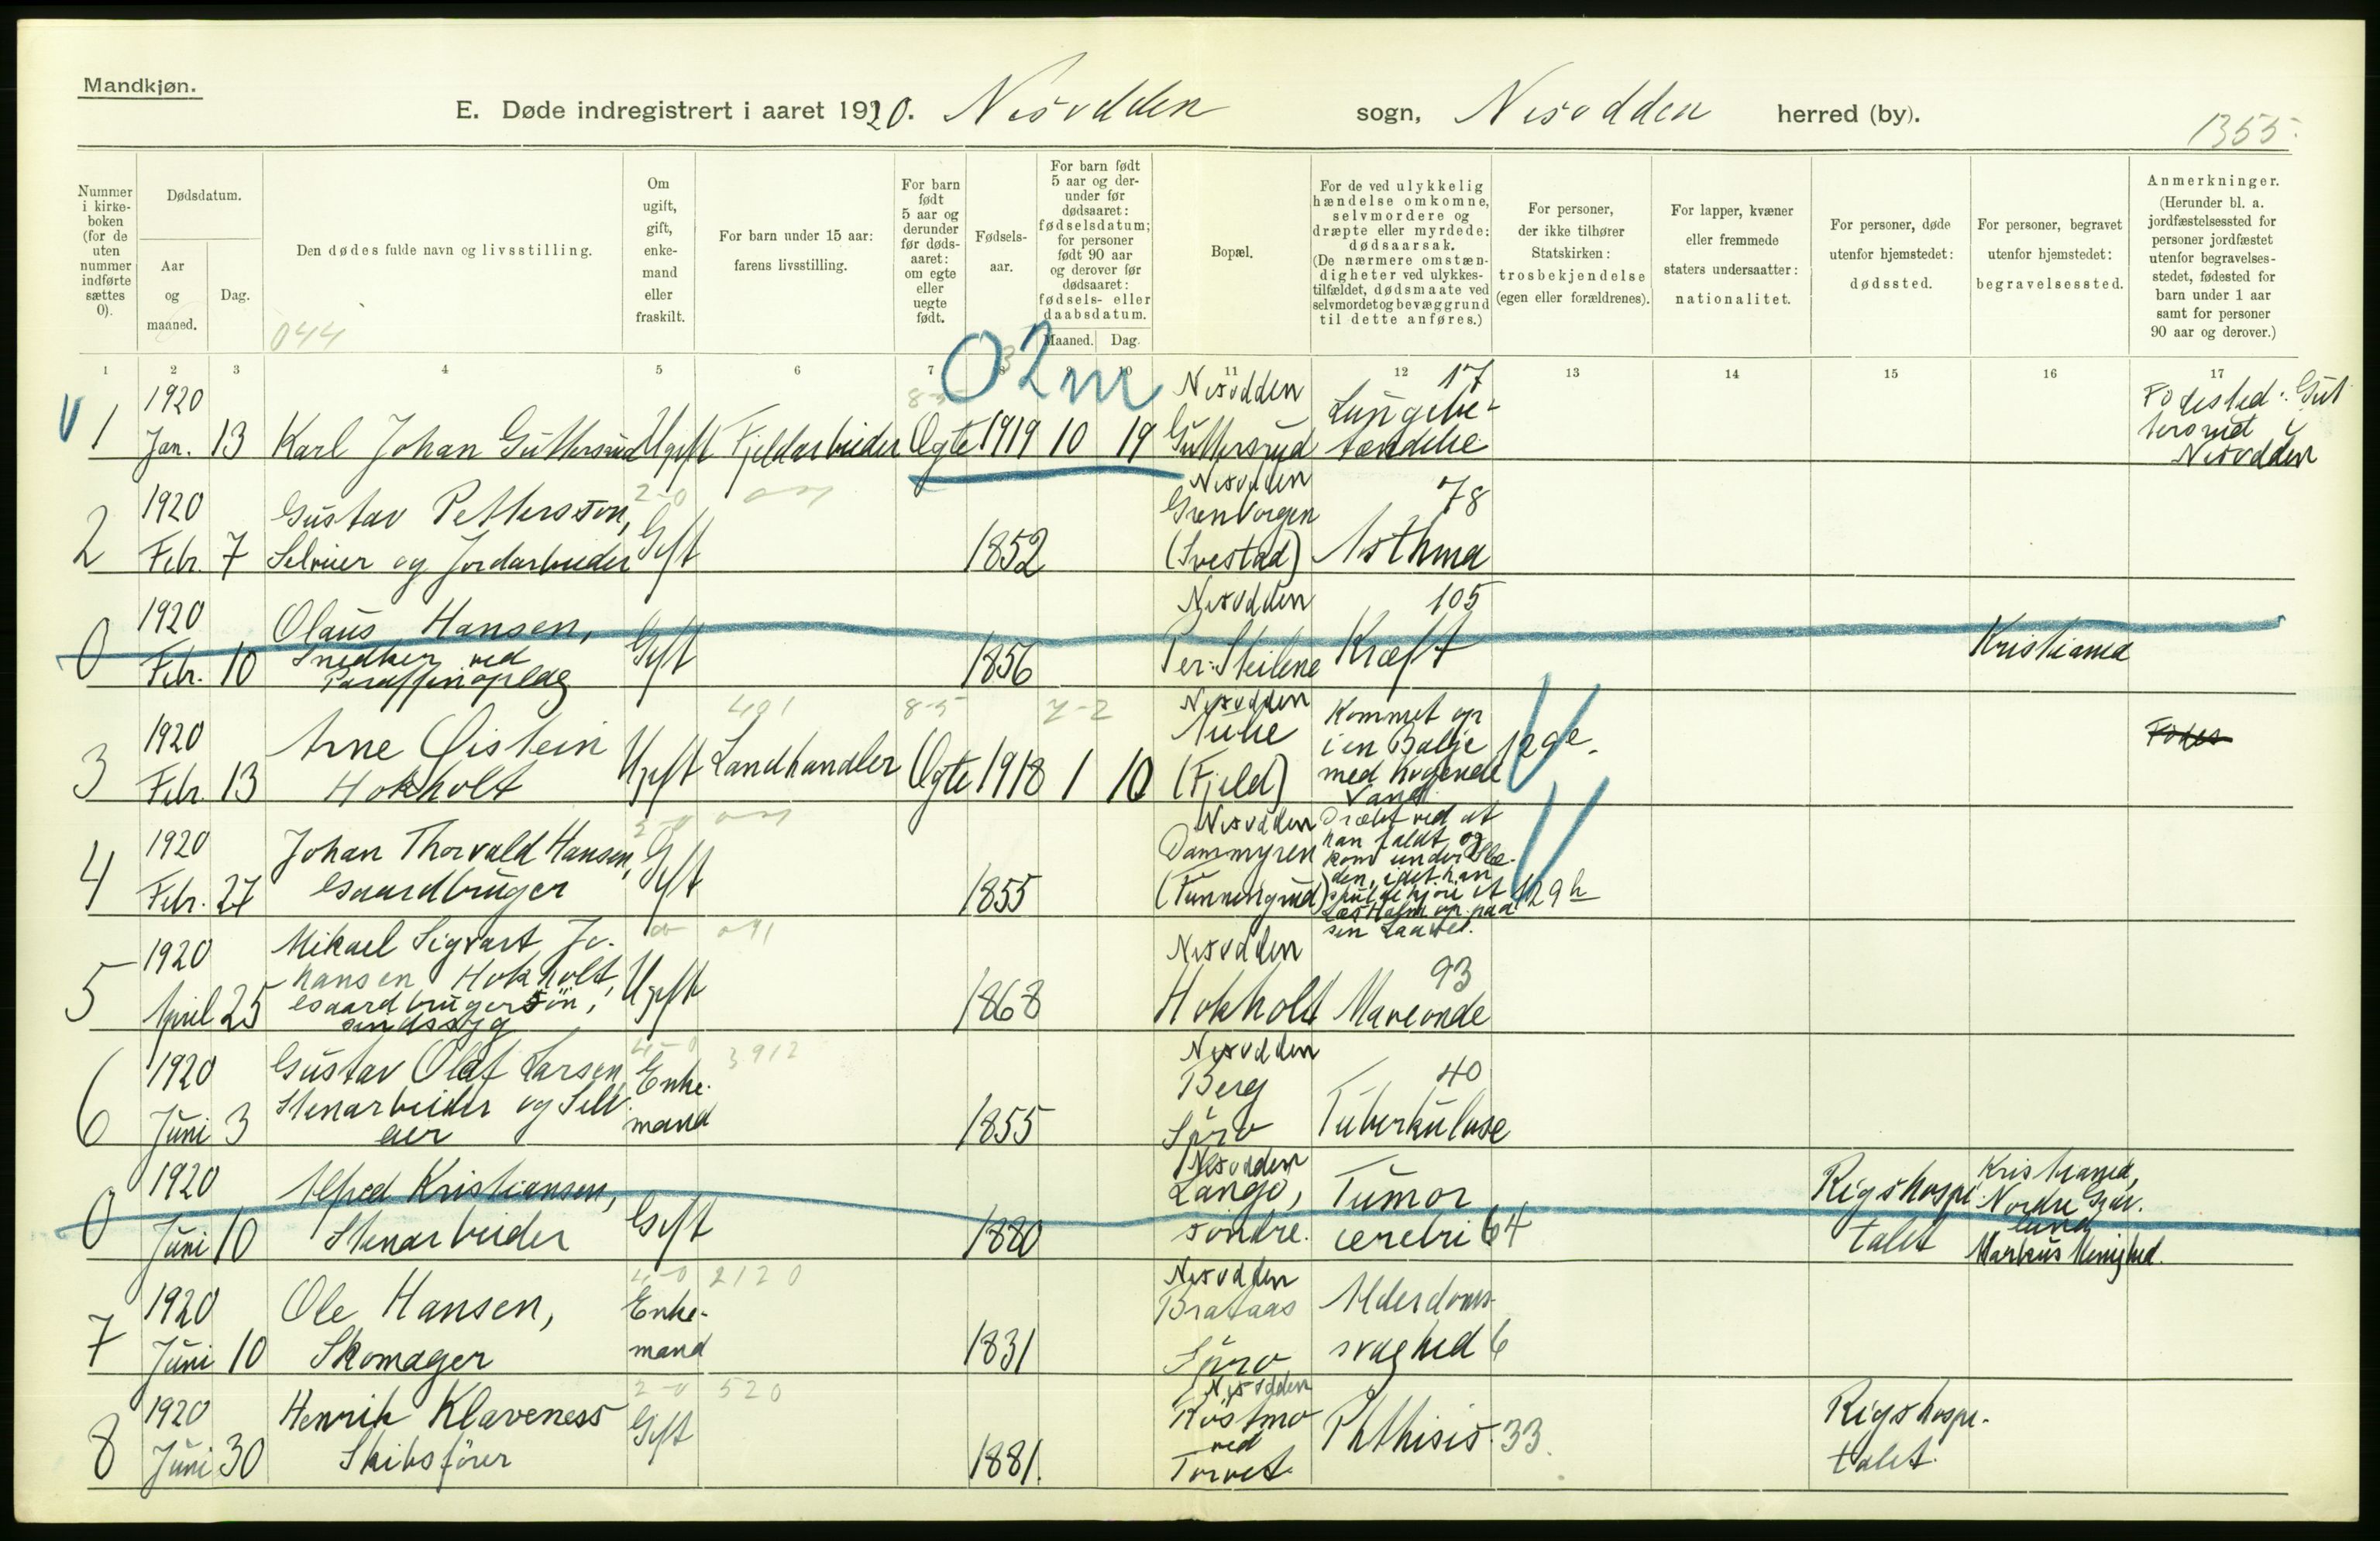 Mandkjøn.
E. Døde indregistrert i aaret 1920. Nesodden sogn, Nesodden herred (by).
1355.
Nummer i kirke-boken (for de uten nummer indførte sættes 0).
Dødsdatum.
Aar og maaned.
Dag.
Den dødes fulde navn og livsstilling.
044
Om ugift, gift, enke-mand eller fraskilt.
For barn under 15 aar: farens livsstilling.
For barn født 5 aar og derunder før døds-aaret: om egte eller uegte født.
Fødsels-aar.
For barn født 5 aar og der-under før dødsaaret: fødselsdatum; for personer født 90 aar og derover før dødsaaret: fødsels- eller daabsdatum.
Maaned. Dag.
Bopæl.
For de ved ulykkelig hændelse omkomne, selvmordere og dræpte eller myrdede: dødsaarsak. (De nærmere omstæn-digheter ved ulykkes-tilfældet, dødsmaate ved selvmordet og bevæggrund til dette anføres.)
For personer, der ikke tilhører Statskirken: trosbekjendelse (egen eller forældrenes).
For lapper, kvæner eller fremmede staters undersaatter: nationalitet.
For personer, døde utenfor hjemstedet: dødssted.
For personer, begravet utenfor hjemstedet: begravelsessted.
Anmerkninger. (Herunder bl. a. jordfæstelsessted for personer jordfæstet utenfor begravelses-stedet, fødested for barn under 1 aar samt for personer 90 aar og derover.)
1 2 3 4 5 6 7 8 9 10 11 12 13 14 15 16 17
02m
1 1920 Jan. 13 Karl Johan Guttersrud Ugift Fjeldarbeider Ægte 1919 10 19 Nesodden Guttersrud 17 Lungebe-tændelse Fødested: Gut tersrud i Nesodden
2 1920 Febr. 7 Gustav Pettersson, Selveier og Jordarbeider 2-0 Gift 1852 Nesodden (Svestad) 78 Asthma
0 1920 Febr. 10 Olaus Hansen, Snedker ved Paraffinoplag Gift 1856 Nesodden Per: Skilene 105 Kræft Kristiania
3 1920 Febr. 13 Arne Øistein Hokholt Ugift 401 Landhandler 8-5 Ægte 1918 1 10 Nesodden (Fjeld) Kommet op i en Balje med kogende Vand. 129e. Fødes
4 1920 Febr. 27 Johan Thorvald Hansen, Gaardbruger 2-0 Gift 1855 Nesodden Dammyren Dræbt ved at han faldt og kom under Slæ-den, idet han skulde kjøre et Læs Halm op paa sin Laavel. 129h
5 1920 April 25 Mikael Sigvart Jo-hansen Hokholt, Gaardbrugersön, sindssyg Ugift 1868 Nesodden Hokholt 93 Maveonde
6 1920 Juni 3 Gustav Olaf Larsen Stenarbeider og Selv.eier 4-0 3912 Enke-mand 1855 Nesodden Berg Spro 40 Tuberkulose
0 1920 Juni 10 Alfred Kristiansen, Stenarbeider Gift 1880 Nesodden Langö, söndre. Tumor cerebri 64 Rigshospi-talet Kristiania, Nordre Grav.lund Markus Menighed.
7 1920 Juni 10 Ole Hansen, Skomager 4-0 2120 Enke-mand 1831 Nesodden Brataas Spro Alderdoms-svaghed 6
8 1920 Juni 30 Henrik Klaveness Skibsförer 2-0 520 Gift 1881. Nesodden ved Torvet. Phthisis. 33. Rigshospi-talet.